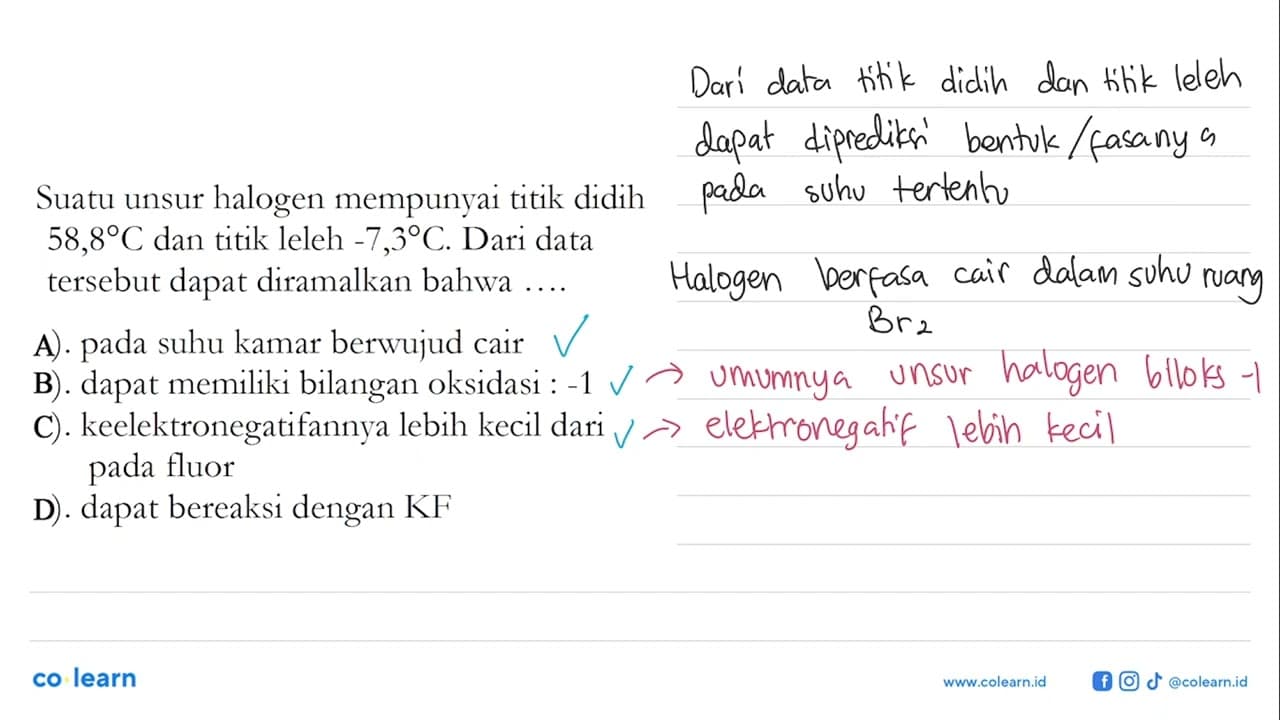 Suatu unsur halogen mempunyai titik didih
58,8°C dan titik leleh -7,3°C. Dari data
tersebut dapat diramalkan bahwa ....
A). pada suhu kamar berwujud cair ✓
B). dapat memiliki bilangan oksidasi : -1 ✓ → umumnya unsur halogen biloks -1
C). keelektronegatifannya lebih kecil dari ✓ → elektronegatif lebih kecil
pada fluor
D). dapat bereaksi dengan KF
Dari data titik didih dan titik leleh
dapat diprediksi bentuk/fasanya
pada suhu tertentu
Halogen berfasa cair dalam suhu ruang
Br2
co learn
www.colearn.id
@colearn.id